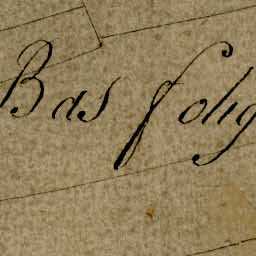 Bas folig